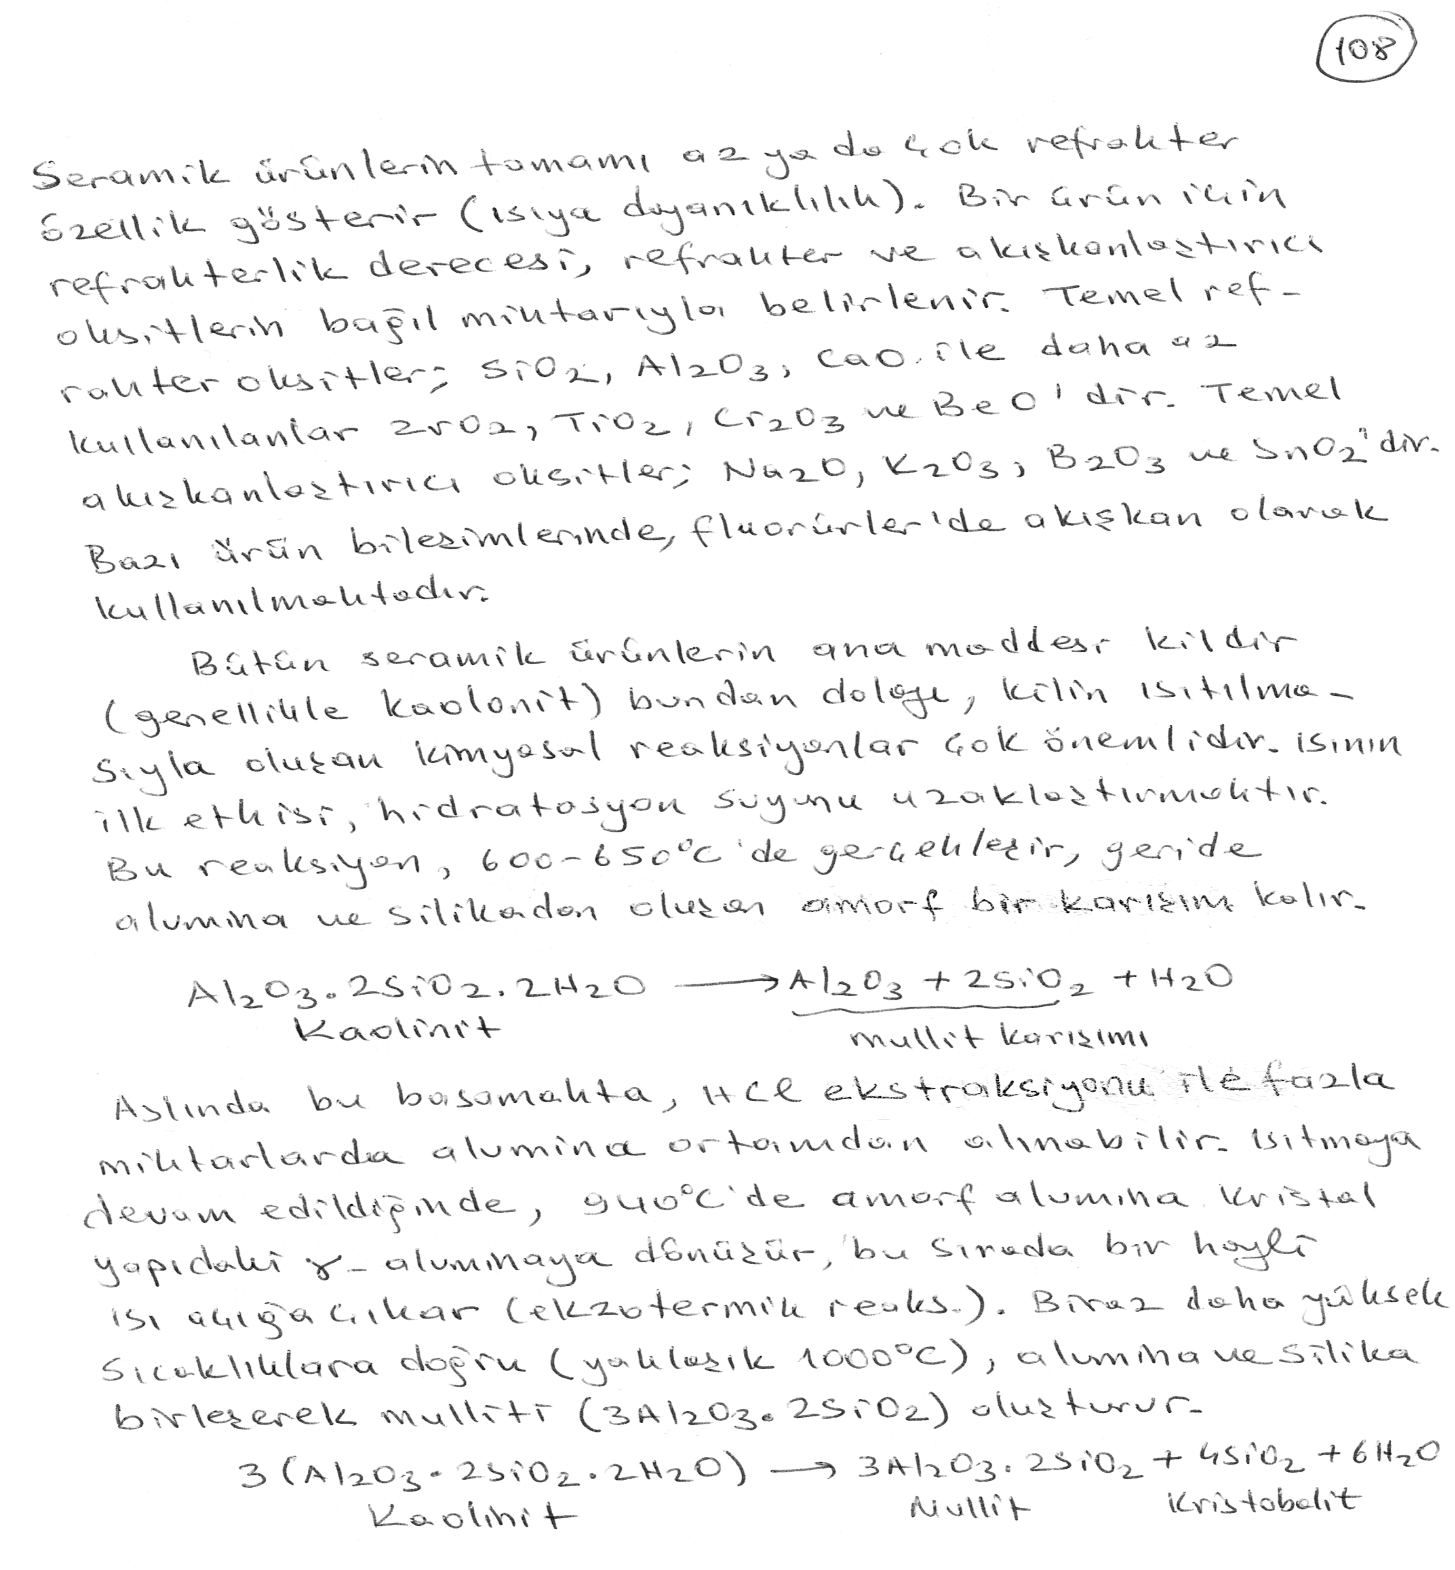 108
Seramik ürünlerin tamamı az ya da çok refrakter
özellik gösterir (ısıya dayanıklılık). Bir ürün için
refrakterlik derecesi, refrakter ve akışkanlaştırıcı
oksitlerin bağıl miktarıyla belirlenir. Temel ref-
rakter oksitler; SiO2, Al2O3, CaO ile daha az
kullanılanlar ZrO2, TiO2, Cr2O3 ve BeO'dir. Temel
akışkanlaştırıcı oksitler; Na2O, K2O3, B2O3 ve SnO2'dir.
Bazı ürün bileşimlerinde, fluorürler'de akışkan olarak
kullanılmaktadır.
Bütün seramik ürünlerin ana maddesi kildir
(genellikle kaolonit) bundan dolayı, kilin ısıtılma-
sıyla oluşan kimyasal reaksiyonlar çok önemlidir. ısının
ilk etkisi, hidratasyon suyunu uzaklaştırmaktır.
Bu reaksiyon, 600-650°C'de gerçekleşir, geride
alumina ve silikadan oluşan amorf bir karışım kalır.
Al2O3.2SiO2.2H2O → Al2O3 + 2SiO2 + H2O
Kaolinit mullit karışımı
Aslında bu basamakta, HCl ekstraksiyonu ile fazla
miktarlarda alumina ortamdan alınabilir. Isıtmaya
devam edildiğinde, 940°C'de amorf alumina kristal
yapıdaki γ-aluminaya dönüşür, bu sırada bir hayli
ısı açığa çıkar (ekzotermik reaks.). Biraz daha yüksek
sıcaklıklara doğru (yaklaşık 1000°C), alumina ve silika
birleşerek mulliti (3Al2O3.2SiO2) oluşturur.
3(Al2O3.2SiO2.2H2O) → 3Al2O3.2SiO2 + 4SiO2 + 6H2O
Kaolinit Mullit Kristobalit